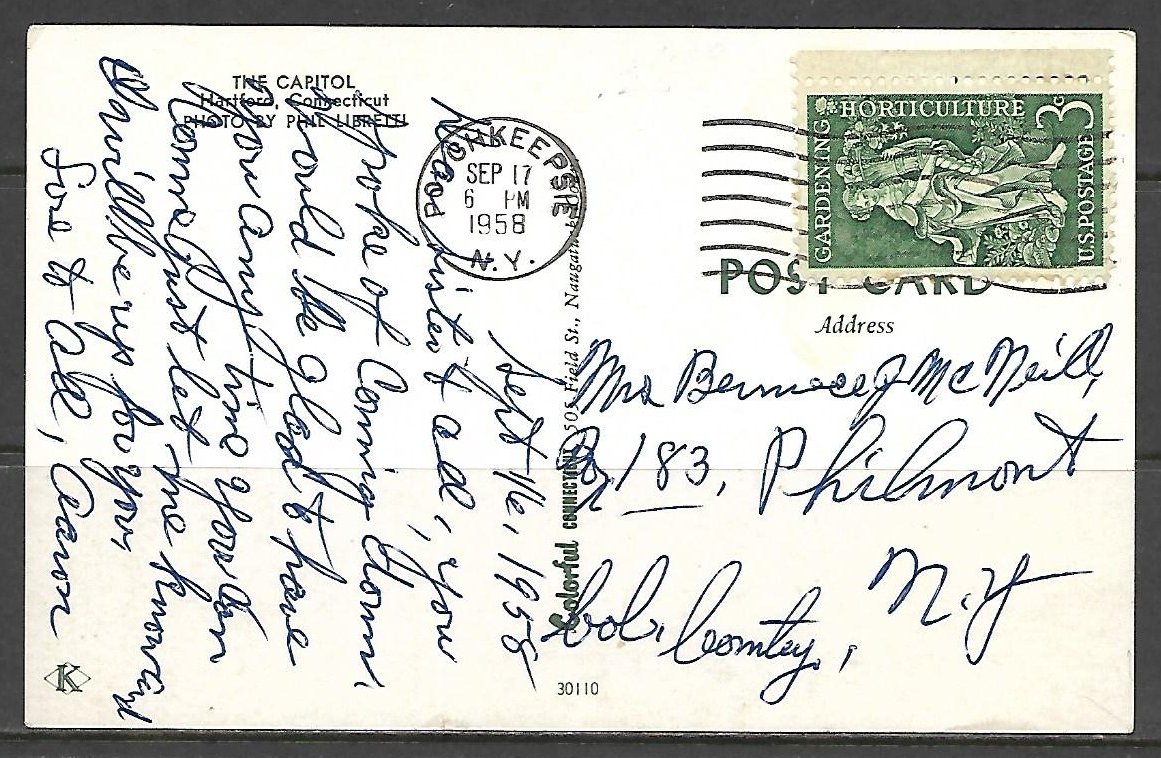 THE CAPITOL
Hartford, Connecticut
PHOTO BY PHIL LIBRETTI
POUGHKEEPSIE
SEP 17
6 PM
1958
N.Y.
GARDENING HORTICULTURE
3c
U.S. POSTAGE
POST CARD
Address
Sept 16, 1958
Dear Sister & ad, you
spoke of Coming Home
would be glad to have
you any time you can
Come Just let me know &
will be up for you,
Love to all,
Mrs Bernice J McNeill,
183, Philmont
Col. County, N.Y
Colorful CONNECTICUT 505 Field St., Naugatuck
30110
K